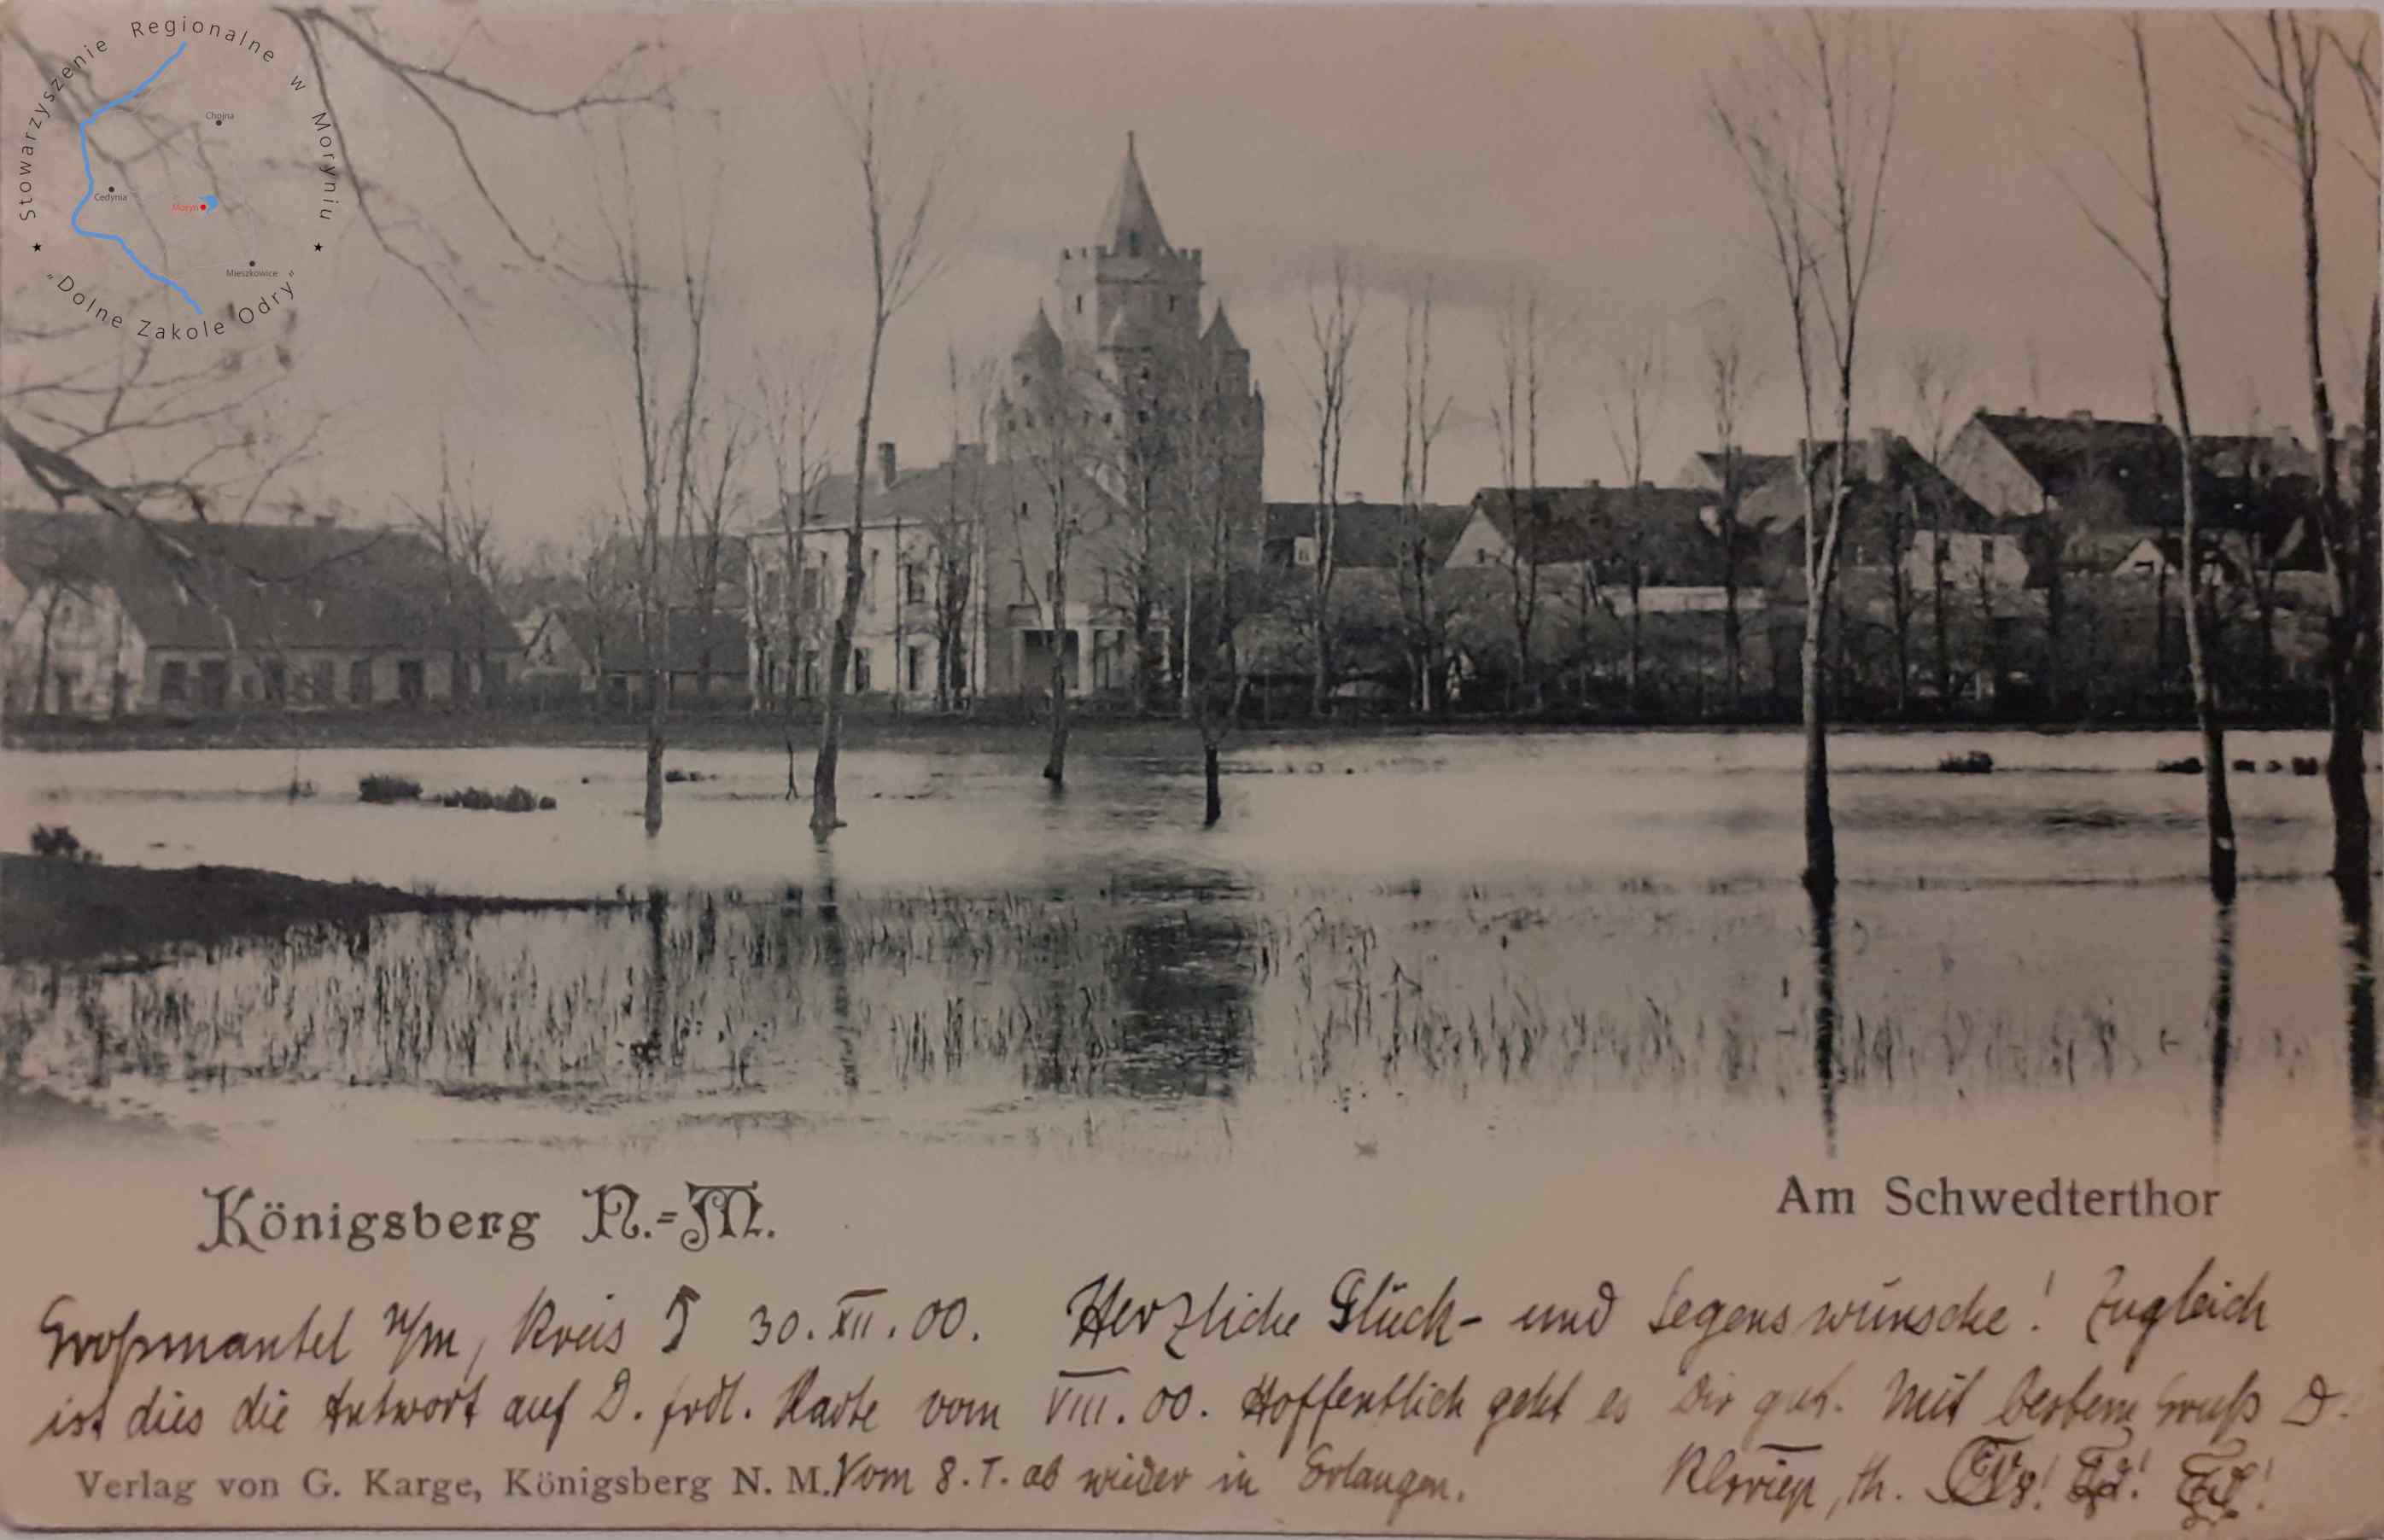 Stowarzyszenie Regionalne w Moryniu
Chojna
Cedynia
Moryń
Mieszkowice
"Dolne Zakole Odry"
Königsberg N.-M.
Am Schwedterthor
Großmantel n/m, Kreis 30. XII. 00. Herzliche Glück- und Segenswünsche! Zugleich
ist dies die Antwort auf D. frdl. Karte vom VIII. 00. Hoffentlich geht es Dir gut. Mit bestem Gruß D.
Verlag von G. Karge, Königsberg N. M. Vom 8. I. ab wieder in Erlangen.
th.